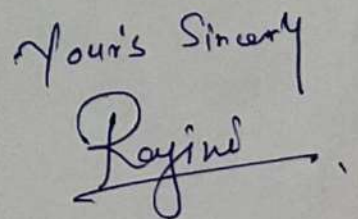 Your's Sincerly
Rojini